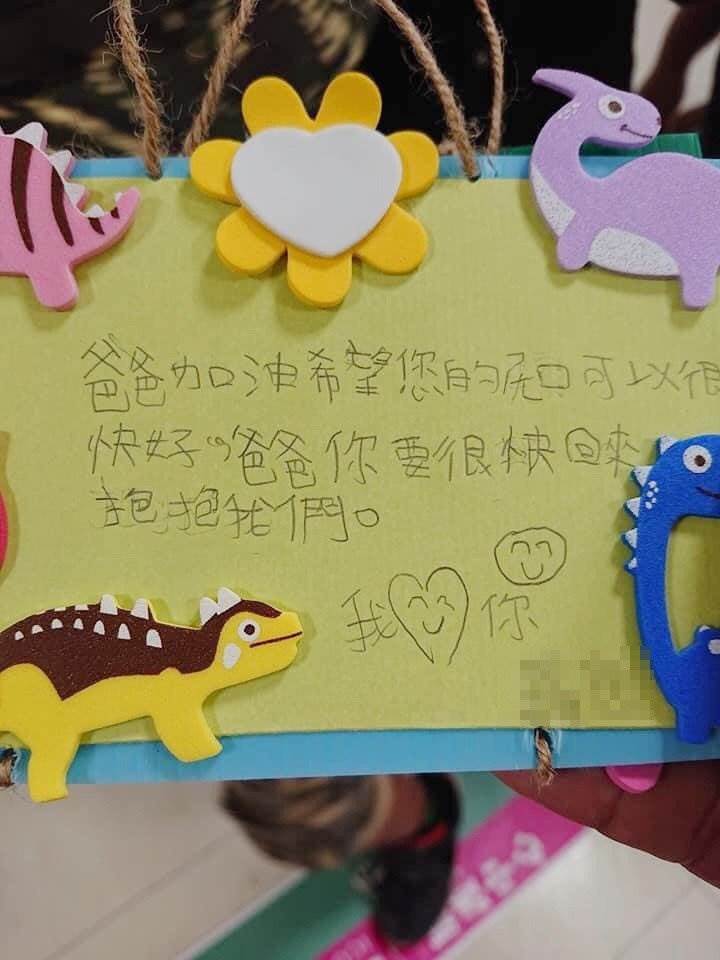 爸爸加油希望您的口可以很
快好，爸爸你要很快回來
抱抱我們。
我你